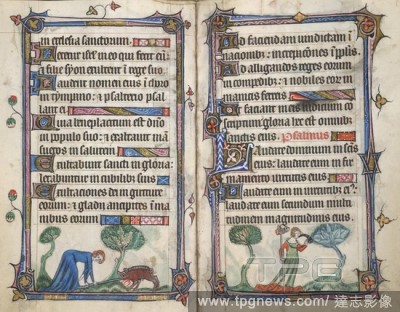 in ecclesia sanctorum:
Letetur isrl' in eo qui fecit eu
& filie syon exultent i rege suo
Laudent nomen eius i choro
in tympano & psalterio psal
lant ei
Quia beneplacitum est dno
in populo suo & exaltauit man
suetos in salutem
Exultabunt sancti in gloria:
letabuntur in cubilibus suis
Exultationes dei in gutture
eorum: & gladii ancipites i ma
nibus eorum
Ad faciendam uindictam i
nationibus: increpationes i pplis
Ad alligandos reges eorum
in compedibus: & nobiles eorum in
manicis ferreis
Ut faciant in eis iudicium con
scriptum: gloria hec est omnibus
sanctis eius. Psalmus
Laudate dominum in scis
eius: laudate eum in fir
mamento uirtutis eius
Laudate eum in uirtutibus ei9:
laudate eum secundum multi
tudinem magnitudinis eius.
TPG
www.tpgnews.com / 達志影像